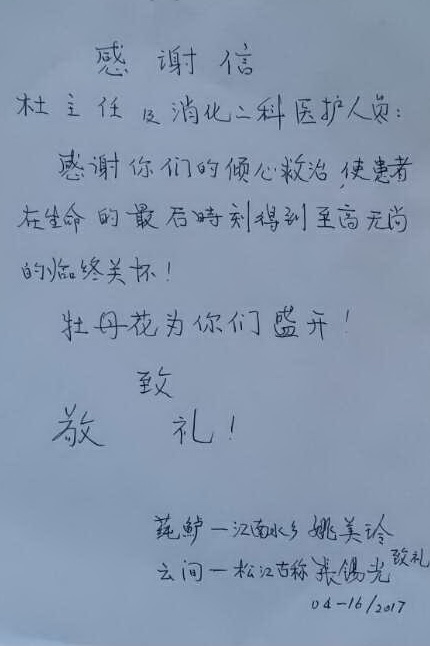 感谢信
杜主任及消化二科医护人员:
感谢你们的倾心救治,使患者
在生命的最后時刻得到至高无尚
的临终关怀!
牡丹花为你们盛开!
致
敬礼!
莼鲈—江南水乡 姚美玲
云间—松江古称 张锡光 致礼
04-16/2017